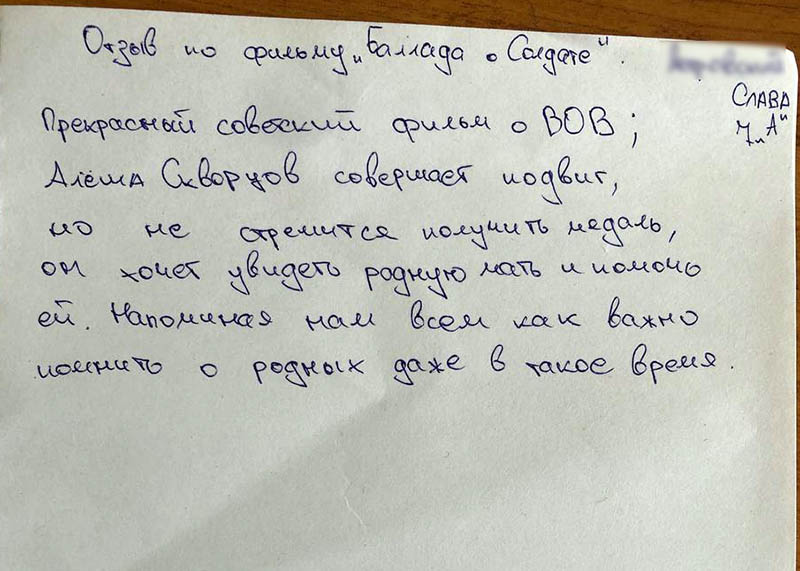 Отзыв по фильму „Баллада о Солдате".
Слава
7„А"
Прекрасный советский фильм о ВОВ;
Алёша Скворцов совершает подвиг,
но не стремится получить медаль,
он хочет увидеть родную мать и помочь
ей. Напоминая нам всем как важно
помнить о родных даже в такое время.